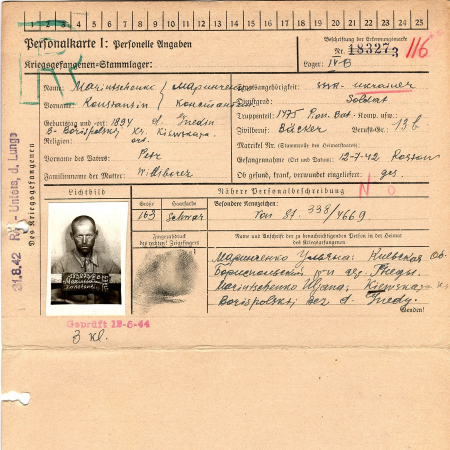 1 2 3 4 5 6 7 8 9 10 11 12 13 14 15 16 17 18 19 20 21 22 23 24 25
Personalkarte I: Personelle Angaben
Beschriftung der Erkennungsmarke
Nr. 183273 116
Kriegsgefangenen-Stammlager:
Lager: IV B
Des Kriegsgefangenen
Name: Marintschenko / Маринченко
Staatsangehörigkeit: Ukrainer
Vorname: Konstantin / Константин
Dienstgrad: Soldat
Geburtstag und -ort: 1894 d. Gnedin
Truppenteil: 1475 Pion. Bat. Komp. usw.
B-Borispolskj Kr. Kiewskaja
Zivilberuf: Bäcker Berufs-Gr.: 13 b
Religion: ort.
Matrikel Nr. (Stammrolle des Heimatstaates):
Vorname des Vaters: Petr
Gefangennahme (Ort und Datum): 12-7-42 Rossosch
Familienname der Mutter:
Ob gesund, krank, verwundet eingeliefert: ges.
No
Lichtbild
Nähere Personalbeschreibung
Größe
Haarfarbe
Besondere Kennzeichen:
163
schwarz
Von 81. 338/4669
Fingerabdruck
des rechten! Zeigefingers
Name und Anschrift der zu benachrichtigenden Person in der Heimat
des Kriegsgefangenen
Маринченко Ульяна: Киевская Об.
Бориспольский
Marintschenko Uljana: Kiewskaja
Borispolskj Bez d. Gnedy.
Wenden!
21.8.42 Rö.- Unters. d. Lunge
Geprüft 12-6-44
3 kl.